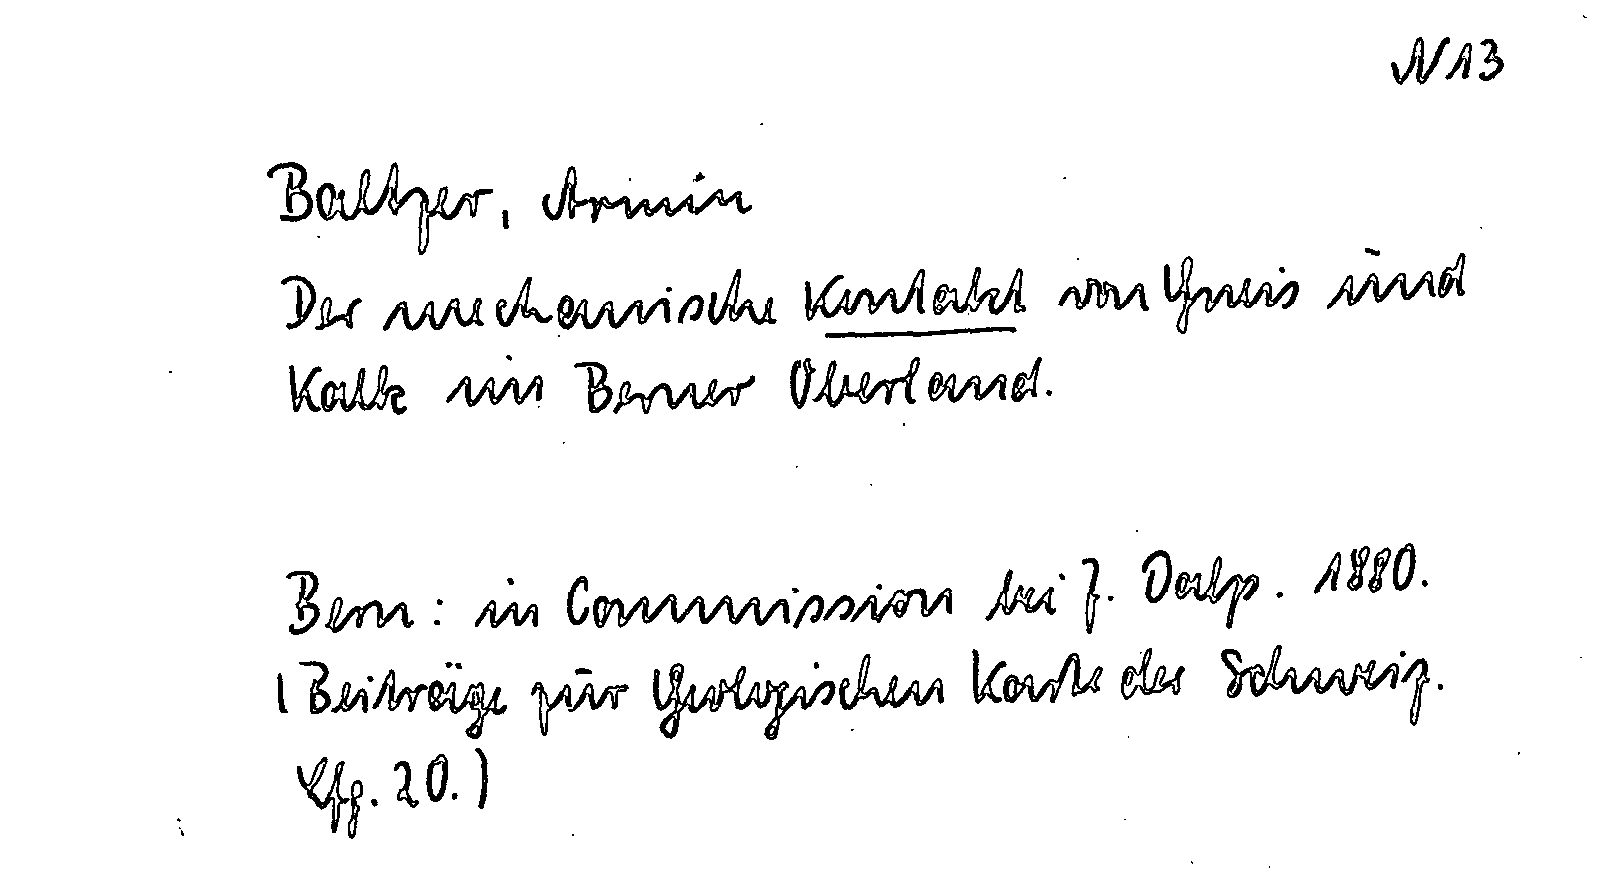 N 13
Baltzer, Armin
Der mechanische Kontakt von Gneis und
Kalk im Berner Oberland.
Bern: in Commission bei J. Dalp. 1880.
(Beiträge zur Geologischen Karte der Schweiz.
Lfg. 20.)